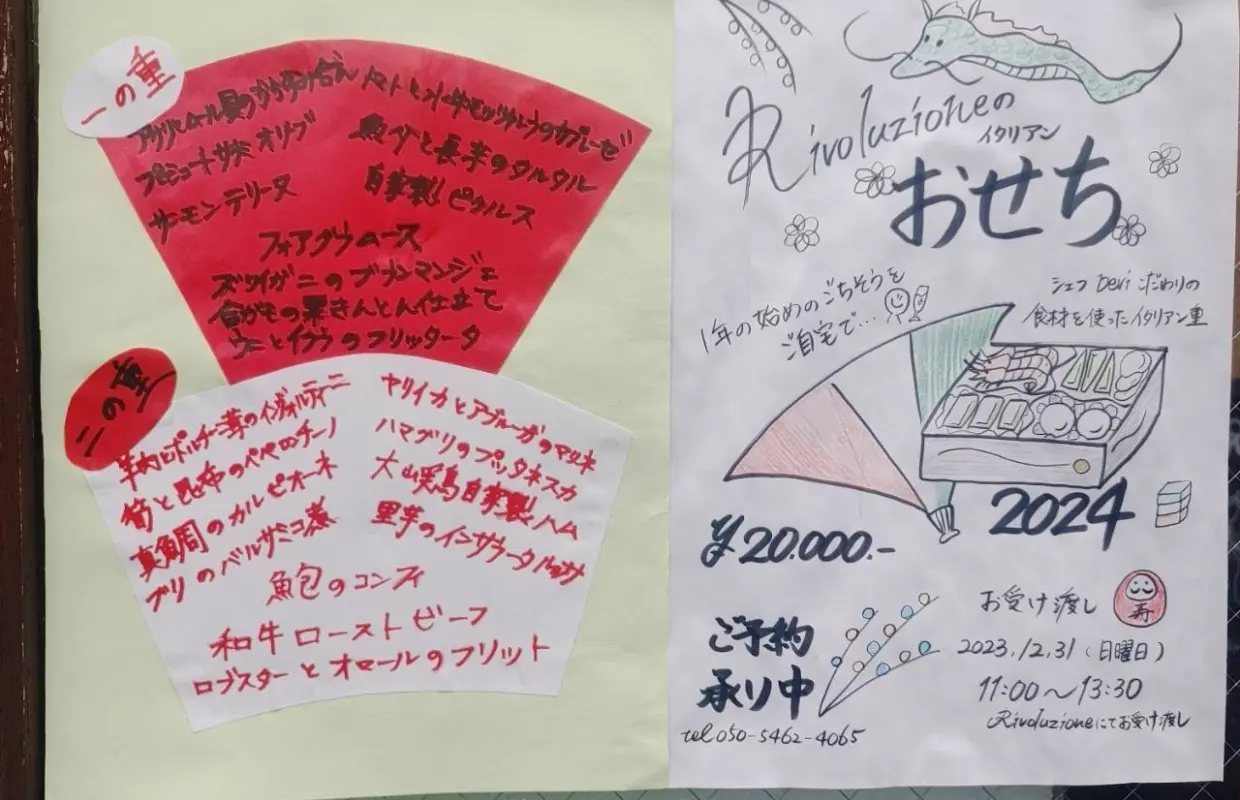 一の重
トマトと水牛モッツァレラのカプレーゼ
プロシュートサラミ オリーブ
魚介と長芋のタルタル
サーモンテリーヌ
自家製ピクルス
フォアグラムース
ズワイガニのブランマンジェ
合がもの栗きんとん仕立て
ウニとイクラのフリッタータ
二の重
羊肉とポルチーニ茸のインヴォルティーニ
ヤリイカとアブルーガのマリネ
筍と昆布のペペロンチーノ
ハマグリのプッタネスカ
真鯛のカルピオーネ
大山鶏自家製ハム
ブリのバルサミコ煮
里芋のインサラータ
鮑のコンフィ
和牛ローストビーフ
ロブスターとオマールのフリット
Rivoluzioneの
イタリアン
おせち
1年の始めのごちそうを
ご自宅で…
シェフ Devi こだわりの
食材を使ったイタリアン重
2024
¥20.000.-
ご予約
承り中
tel 050-5462-4065
お受け渡し
寿
2023.12.31(日曜日)
11:00〜13:30
Rivoluzioneにてお受け渡し